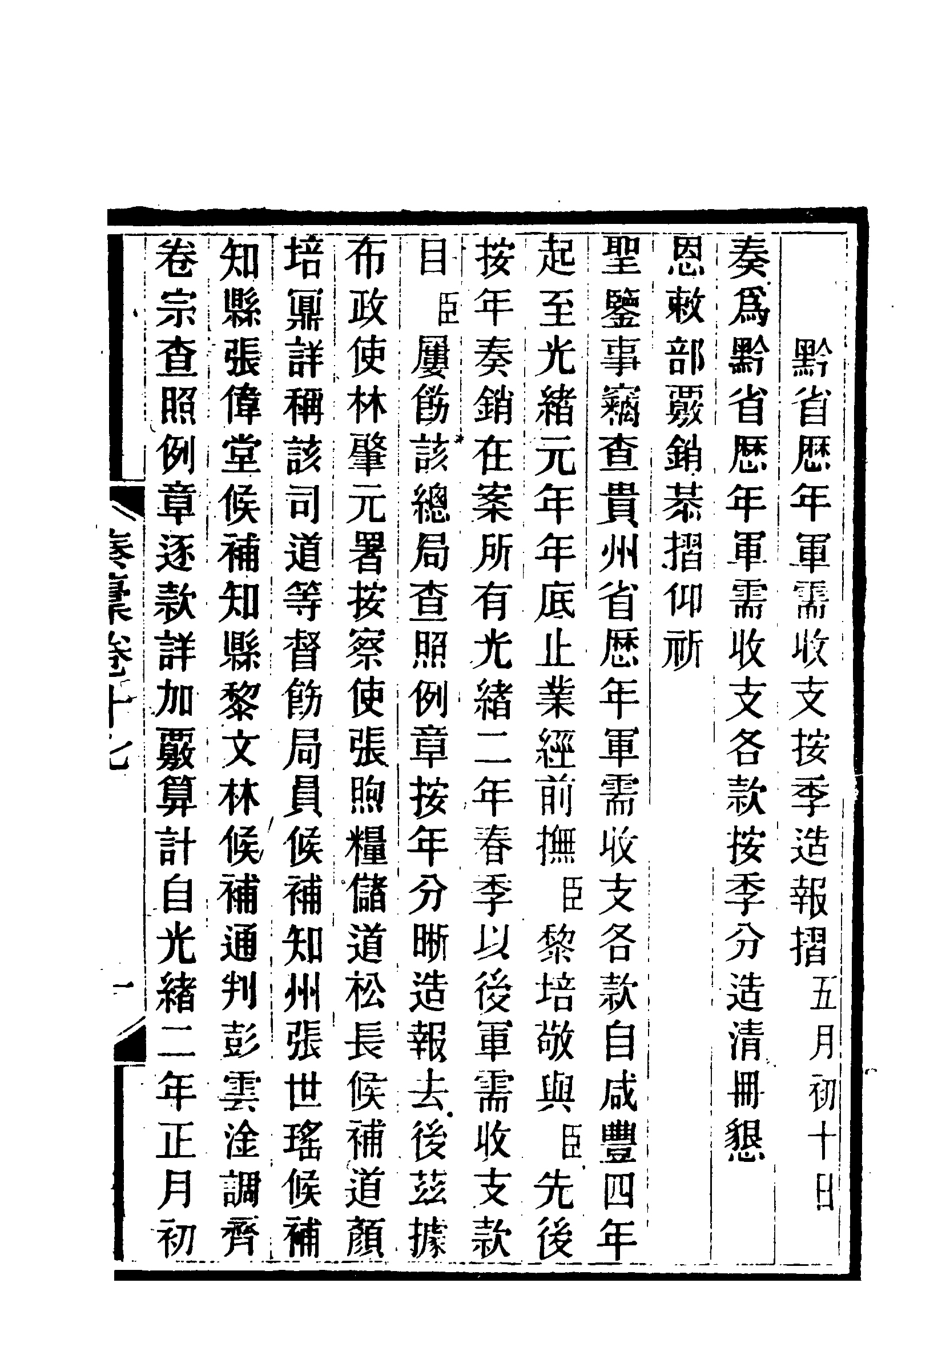 黔省歷年軍需收支按季造報摺五月初十日
奏爲黔省歷年軍需收支各款按季分造清冊懇
恩敕部覈銷恭摺仰祈
聖鑒事竊查貴州省歷年軍需收支各款自咸豐四年
起至光緒元年年底止業經前撫臣黎培敬與臣先後
按年奏銷在案所有光緒二年春季以後軍需收支款
目臣屢飭該總局查照例章按年分晰造報去後茲據
布政使林肇元署按察使張煦糧儲道松長候補道顏
培鼏詳稱該司道等督飭局員候補知州張世瑤候補
知縣張偉堂候補知縣黎文林候補通判彭雲淦調齊
卷宗查照例章逐款詳加覈算計自光緒二年正月初
奏稾卷十七
一